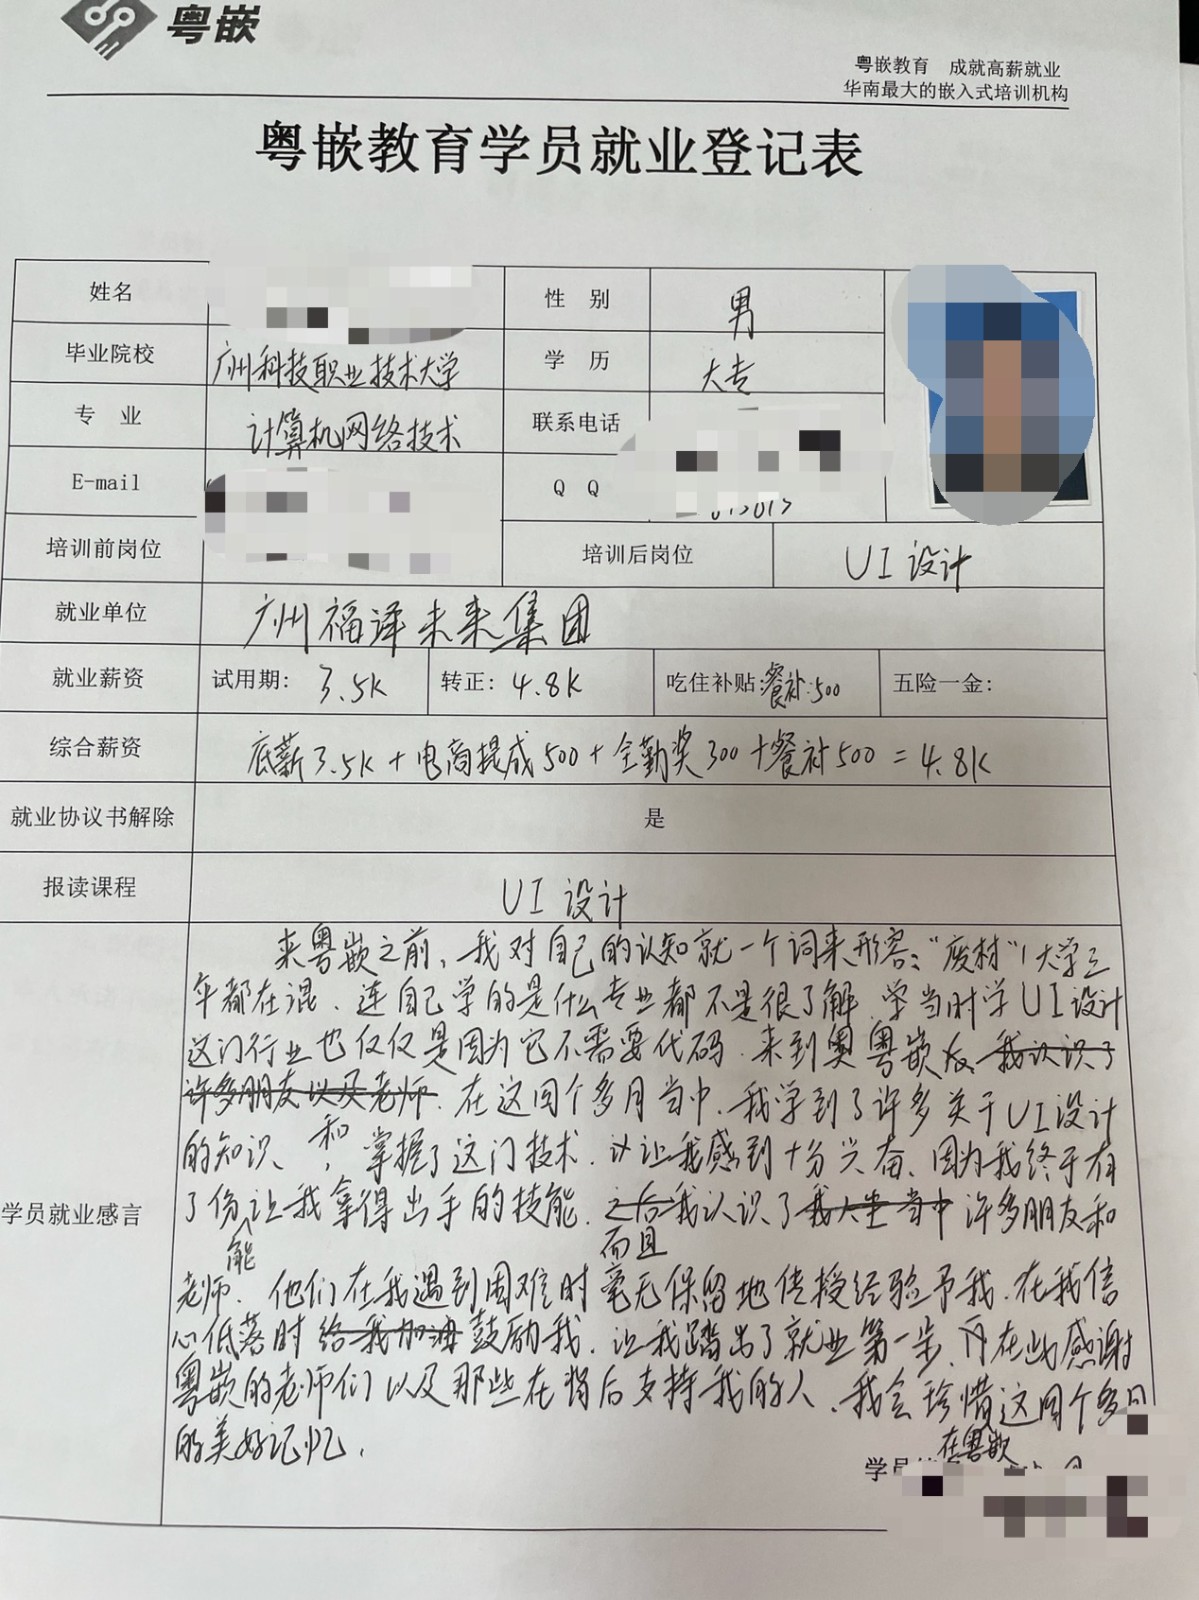 粤嵌
粤嵌教育 成就高薪就业
华南最大的嵌入式培训机构
粤嵌教育学员就业登记表
姓名
性 别 男
毕业院校 广州科技职业技术大学 学 历 大专
专 业 计算机网络技术 联系电话
E-mail Q Q
培训前岗位 培训后岗位 UI设计
就业单位 广州福泽未来集团
就业薪资 试用期: 3.5K 转正: 4.8K 吃住补贴:餐补:500 五险一金:
综合薪资 底薪3.5K+电商提成500+全勤奖300+餐补500=4.8K
就业协议书解除 是
报读课程 UI设计
学员就业感言
来粤嵌之前,我对自己的认知就一个词来形容:"废材"!大学三
年都在混.连自己学的是什么专业都不是很了解.学当时学UI设计
这门行业也仅仅是因为它不需要代码.来到粤嵌 我认识了
许多朋友以及老师.在这四个多月当中.我学到了许多关于UI设计
的知识、和,掌握了这门技术.让我感到十分兴奋、因为我终于有
了份能让我拿得出手的技能.之后而且我认识了 当中 许多朋友和
老师.他们在我遇到困难时毫无保留地传授经验予我.在我信
心低落时给我加油鼓励我.让我踏出了就业第一步.在此感谢
粤嵌的老师们以及那些在背后支持我的人.我会珍惜这四个多月
在粤嵌
的美好记忆.
学员